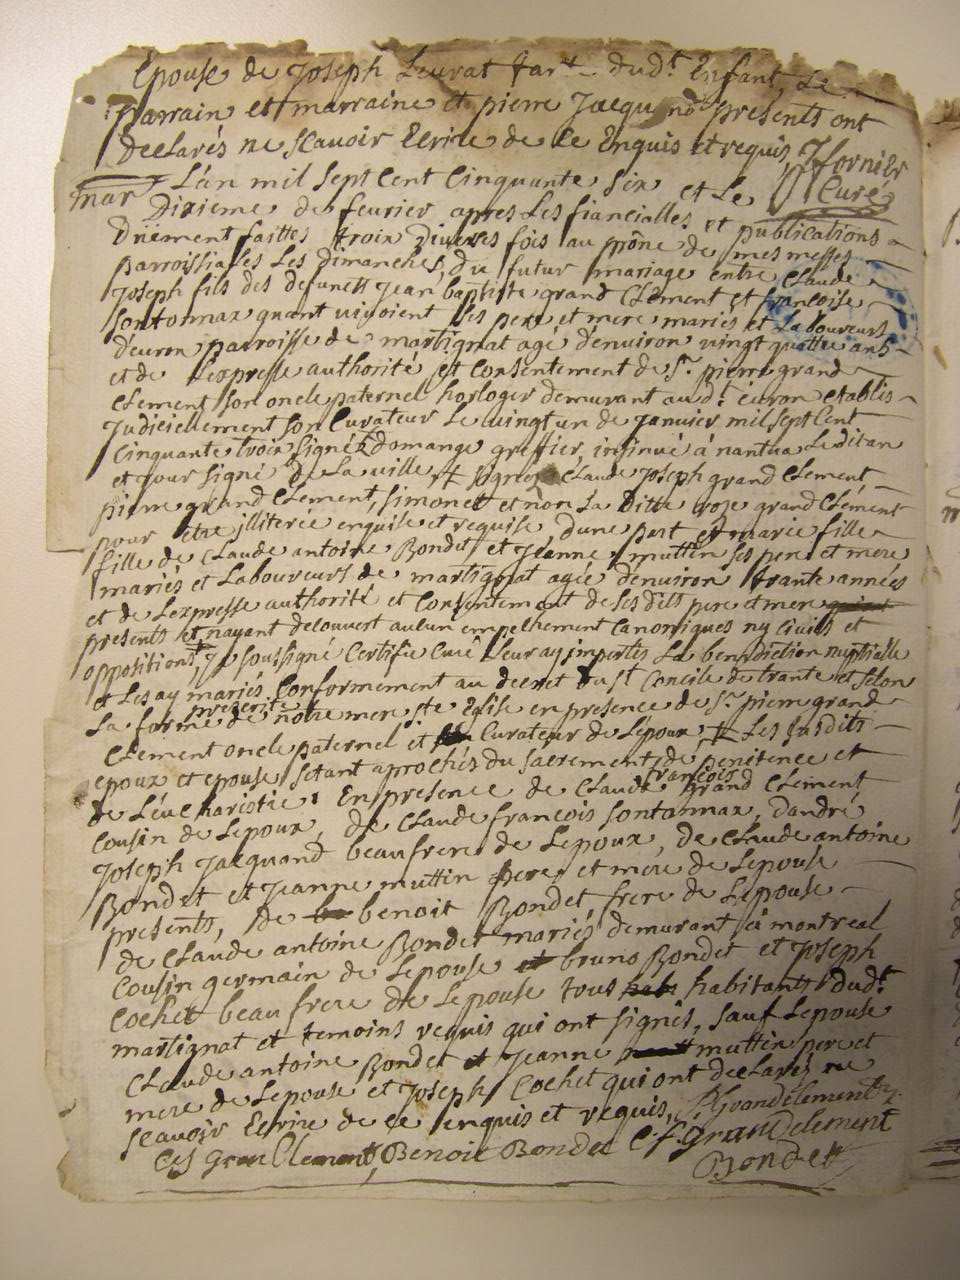 Epouse de Joseph Leurat tante dud.t Enfant, Le
parrain et marraine et pierre Jacquand presents ont
declarés ne scavoir Ecrire de ce Enquis et requis
Fornier
Curé
mar
L'an mil sept Cent Cinquante six et le
Dixieme de fevrier apres Les fiancialles et publications
Duement faittes trois diverses fois au prône de mes messes
parroissiales Les dimanches, du futur mariage entre Claude
Joseph fils des defunctt Jean baptiste grand Clement et francoise
Sontonnax quant vivoient ses pere et mere mariés et Laboureurs
d'evron parroisse de martignat agé d'environ vingt quattre ans
et de L'expresse authorité et Consentement de S.r pierre grand
Clement son oncle paternel horloger demurant aud.t evron etablis
Judicielement son Curateur Le vingt un de Janvier mil sept Cent
Cinquante trois signé domange greffier, insinué à nantua Ledit an
et jour signé de La ville Claude Joseph grand Clement
pierre grand Clement, simonett et non La Ditte roze grand Clement
pour etre illiterée enquise et requise, d'une part et marie fille
fille de Claude antoine Bondet et Jeanne muttin ses pere et mere
mariés et Laboureurs de martignat agée d'environ trante années
et de L'expresse authorité et Consentement de ses dits pere et mere
presents et nayant decouvert aucun empeschement Canoniques ny Civils et
oppositions, Je soussigné Certifie Curé Leur ay impertis La benediction nuptialle
et Les ay mariés Conformement au decret du S.t Concile de trante et selon
La forme prescrite de notre mere S.te Eglise en presence de S.r pierre grand
Clement oncle paternel et Curateur de L'epoux, Les susdits
epoux et epouse s'etant aprochés du sacrement de penitence et
de L'eucharistie; En presence de Claude francois Grand Clement
Cousin de Lepoux, de Claude francois Sontonnax, d'andré
Joseph Jacquand beaufrere de Lepoux, de Claude antoine
Bondet et Jeanne muttin pere et mere de Lepouse
presents, de benoit Bondet frere de Lepouse
de Claude antoine Bondet mariés demurant à montreal
Cousin germain de Lepouse et bruno Bondet et Joseph
Cochet beaufrere de Lepouse tous habitants dud.t
martignat et temoins requis qui ont signés, sauf Lepouse
Claude antoine Bondet et Jeanne muttin pere et
mere de Lepouse et Joseph Cochet qui ont declarés ne
scavoir Ecrire de ce enquis et requis, P Grandclement
Benoit Bondet C f grand clement
Bondet